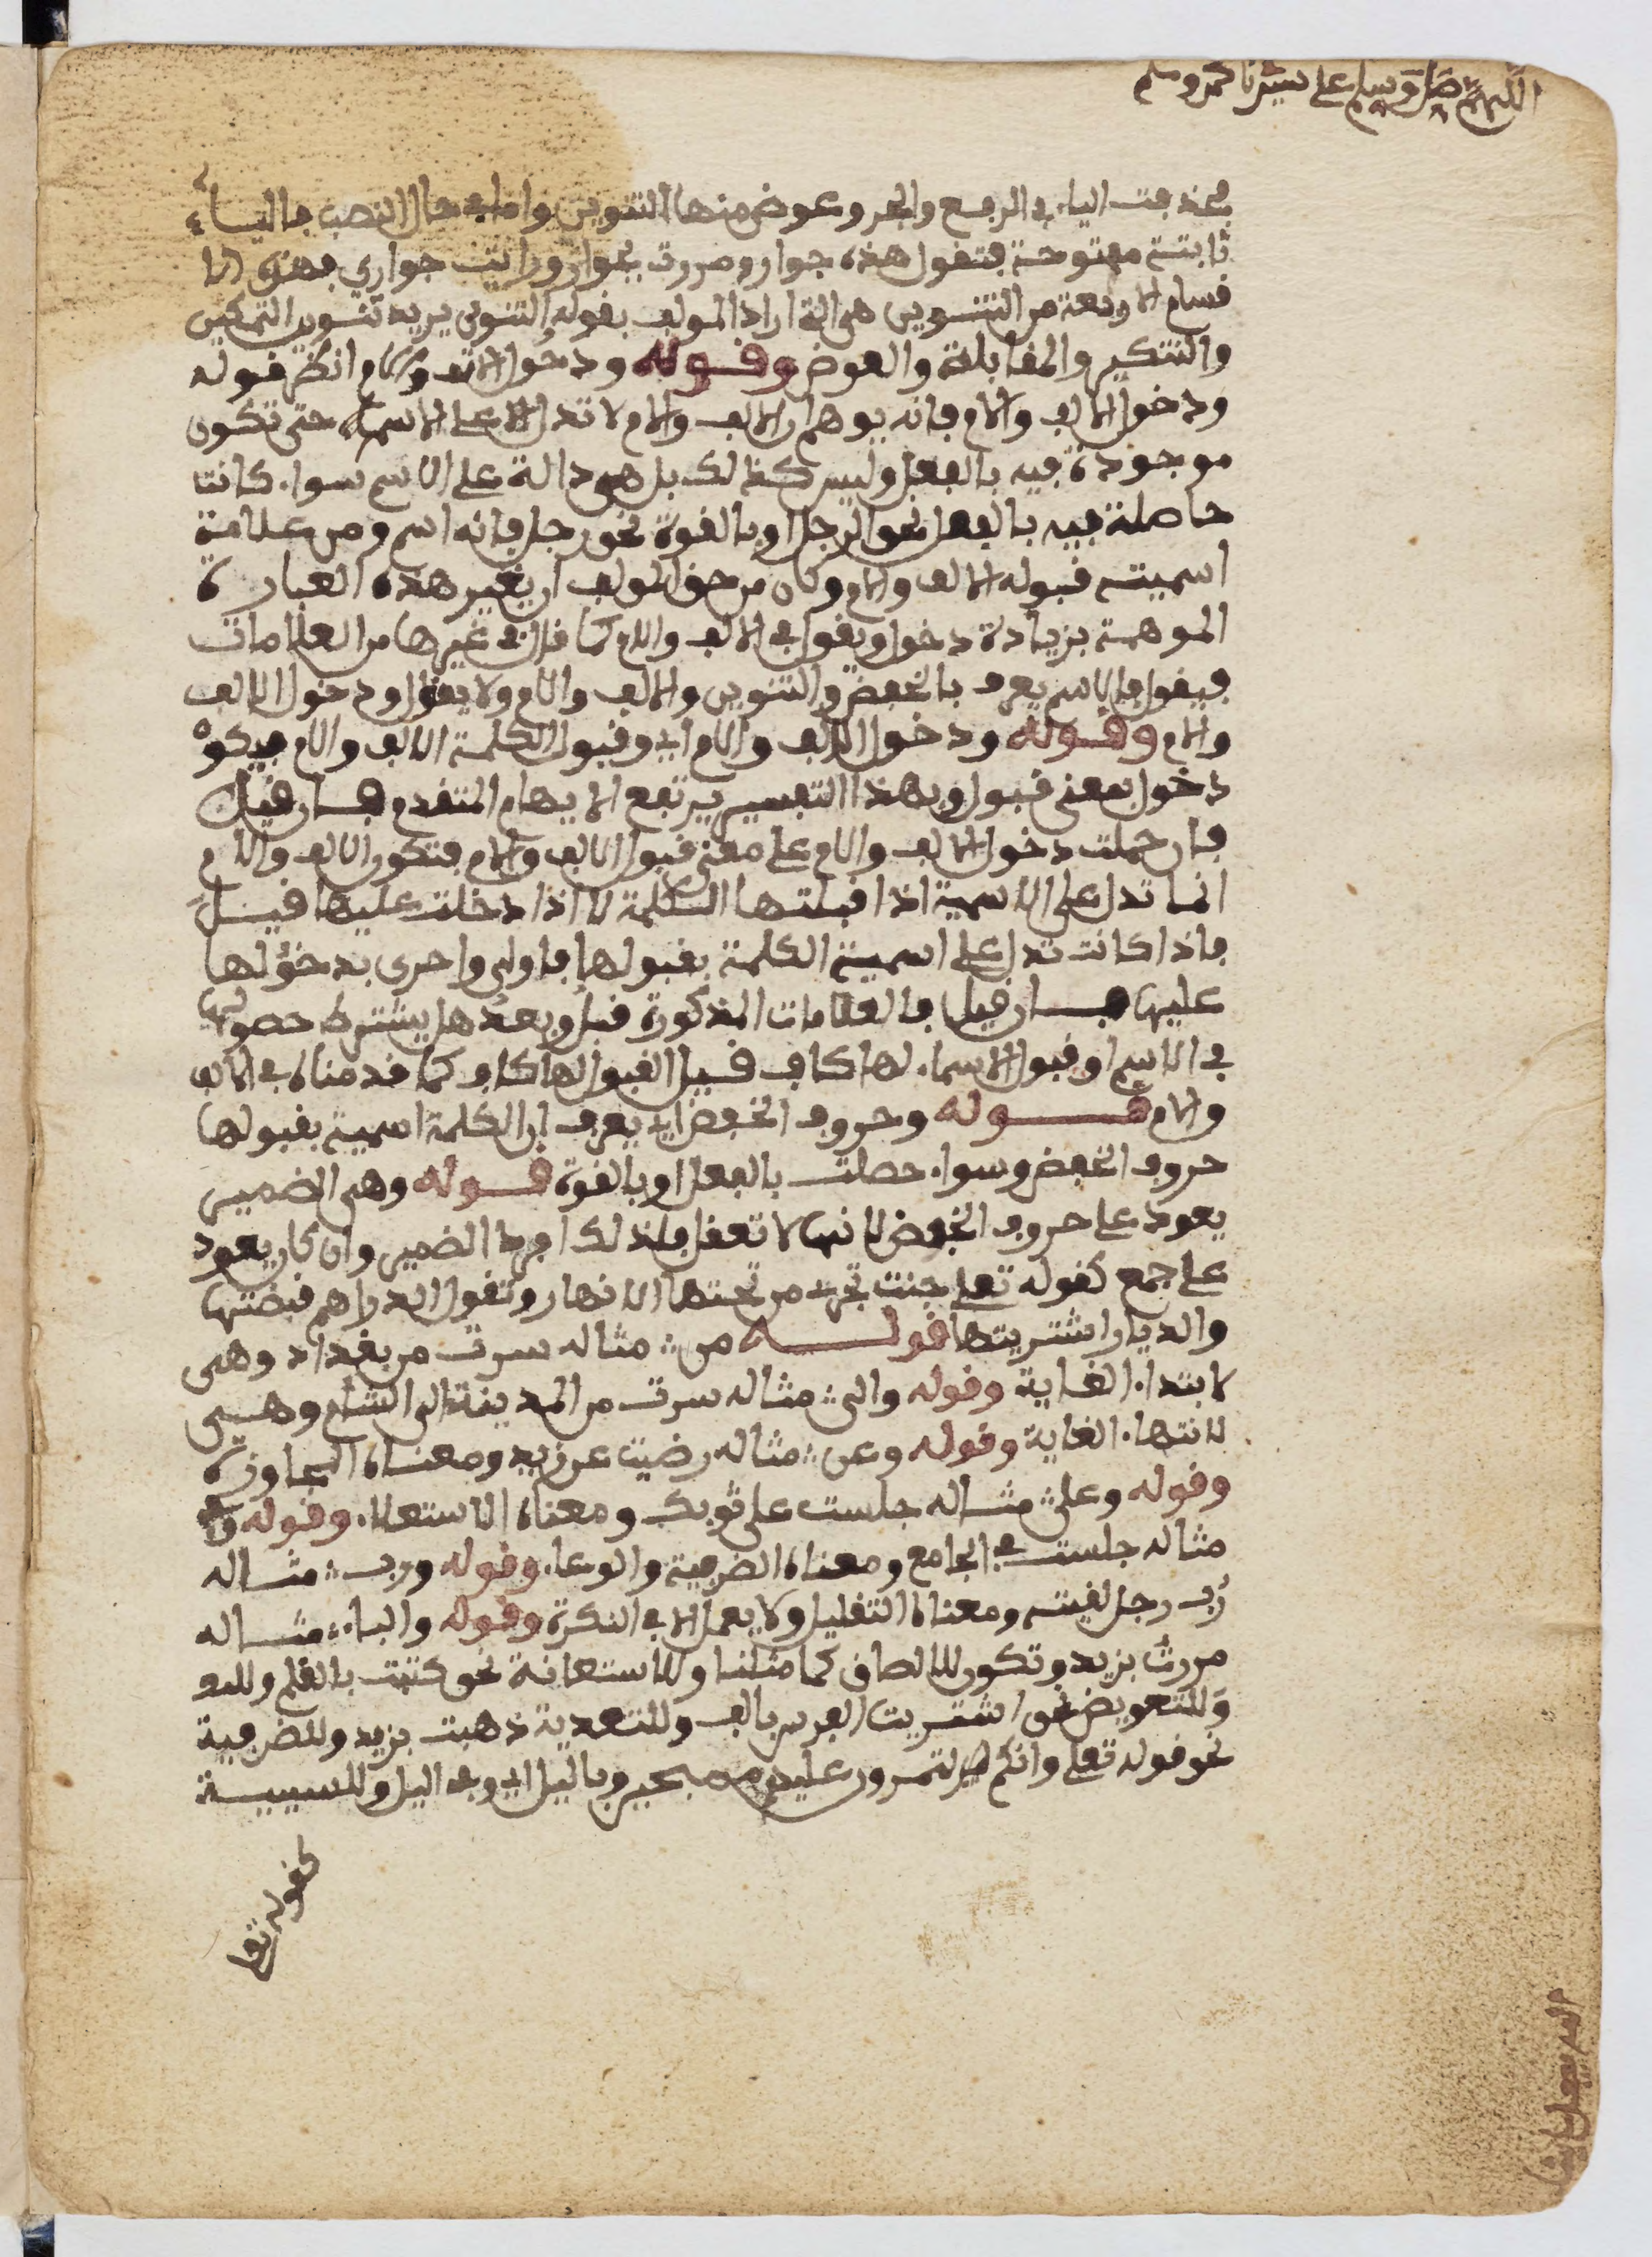 اللهم صل وسلم على سيدنا محمد وسلم
فحذفت الياء في الرفع والجر وعوض منها التنوين واما في حال النصب فالياء
ثابتة مفتوحة فتقول هذه جوار ومررت بجوار ورايت جواري فهذه الا
قسام الاربعة من التنوين هي التي اراد المولف بقوله والتنوين يريد تنوين التمكين
والتنكير والمقابلة والعوض وقوله ودخول الالف والام انظر قوله
ودخول الالف والام فانه يوهم ان الالف والام لا تدل الا على الاسم حتى تكون
موجودة فيه بالفعل وليس كذلك بل هي دالة على الاسم سواء كانت
حاصلة فيه بالفعل نحو الرجل او بالقوة نحو رجل فانه اسم ومن علامة
اسميته قبوله الالف والام وكان من حق المولف ان يغير هذه العبارة
الموهمة بزيادة دخول ويقول في الالف والام كما قال في غيرها من العلامات
فيقول فالاسم يعرف بالخفض والتنوين والالف والام ولا يقول ودخول الالف
والام وقوله ودخول الالف والام اي وقبول الكلمة الالف والام فيكون
دخول بمعنى قبول وبهذا التفسير يرتفع الايهام المتقدم فان قيل
فان حملت دخول الالف والام على معنى قبول الالف والام فتكون الالف والام
انما تدل على الاسمية اذا قبلتها الكلمة لا اذا دخلت عليها قيل
فاذا كانت تدل على اسمية الكلمة بقبولها فاولى واحرى بدخولها
عليها فان قيل فالعلامات المذكورة قبل وبعد هل يشترط حصولها
في الاسم او قبول الاسماء لها كاف قيل القبول لها كاف كما قدمناه في الالف
والام قوله وحروف الخفض اي يعرف ان الكلمة اسمية بقبولها
حروف الخفض وسواء حصلت بالفعل او بالقوة قوله وهي الضمير
يعود على حروف الخفض لانها لا تعقل فلذلك افرد الضمير وان كان يعود
على جمع كقوله تعلى جنت تجري من تحتها الانهار وتقول الدراهم قبضتها
والديار اشتريتها قوله من مثاله سرت من بغداد وهي
لابتداء الغاية وقوله والى مثاله سرت من المدينة الى الشام وهي
لانتهاء الغاية وقوله وعن مثاله رضيت عن زيد ومعناه المجاوزة
وقوله وعلى مثاله جلست على ثوبك ومعناه الاستعلاء وقوله وفي
مثاله جلست في الجامع ومعناه الضرفية والوعاء وقوله ورب مثاله
رُب رجل لقيته ومعناه التقليل ولا يعمل الا في النكرة وقوله والباء مثاله
مررت بزيد وتكون للالصاق كما مثلنا وللاستعانة نحو كتبت بالقلم
وللتعويض نحو اشتريت الفرس بالف وللتعدية ذهبت بزيد وللضرفية
نحو قوله تعلى وانكم لتمرون عليهم مصبحين وباليل اي وفي اليل وللسببية
كقوله تعا